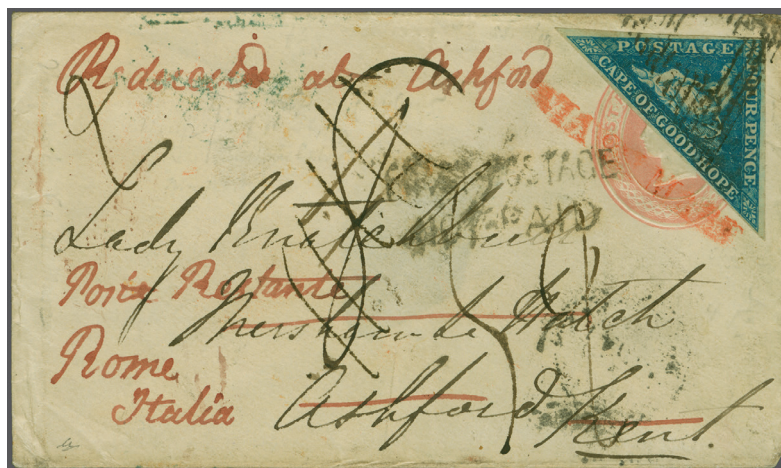 Redirected at Ashford
POSTAGE
FOUR PENCE
CAPE OF GOOD HOPE
POSTAGE
PAID
Lady Knatchbull
Poste Restante
Mersham le Hatch
Rome
Italia
Ashford
Kent.